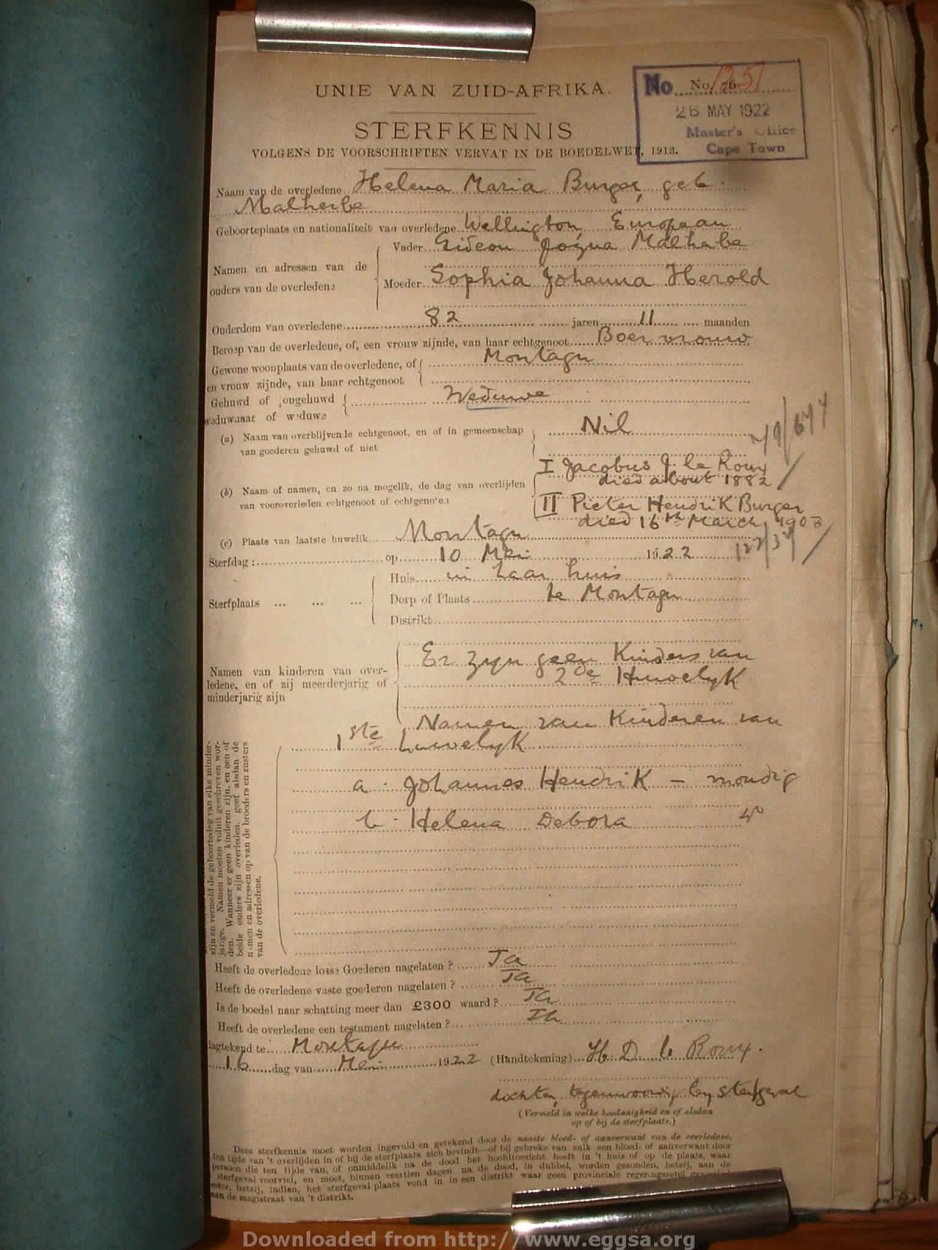 UNIE VAN ZUID-AFRIKA.
No No. 1351
26 MAY 1922
Master's Office
Cape Town
STERFKENNIS
VOLGENS DE VOORSCHRIFTEN VERVAT IN DE BOEDELWET, 1913.
Naam van de overledene Helena Maria Burger, geb.
Malherbe
Geboorteplaats en nationaliteit van overledene Wellington, European
Namen en adressen van de ouders van de overledene
Vader Gideon Jozua Malherbe
Moeder Sophia Johanna Herold
Ouderdom van overledene 82 jaren 11 maanden
Beroep van de overledene, of, een vrouw zijnde, van haar echtgenoot Boer vrouw
Gewone woonplaats van de overledene, of Montagu
een vrouw zijnde, van haar echtgenoot
Gehuwd of ongehuwd Weduwe
weduwnaar of weduwe
(a) Naam van overblijvende echtgenoot, en of in gemeenschap Nil
van goederen gehuwd of niet
I Jacobus J. le Roux
died about 1882
(b) Naam of namen, en zo na mogelik, de dag van overlijden
van vooroverleden echtgenoot of echtgenoten
II Pieter Hendrik Burger
died 16th March 1903
(c) Plaats van laatste huwelik Montagu
Sterfdag: op 10 Mei 1922
Sterfplaats ... ... ...
Huis in haar huis
Dorp of Plaats te Montagu
Distrikt
Namen van kinderen van over-
ledene, en of zij meerderjarig of
minderjarig zijn
Er zyn geen Kinders van
2de Huwelyk
Namen van Kinderen van
1ste huwelyk
a. Johannes Hendrik - mondig
b. Helena Debora do
zijn en vermeld de geboortedag van elke minder-
jarige. Namen moeten voluit geschreven wor-
den. Wanneer er geen kinderen zijn, en een of
beide ouders zijn overleden, geef alsdan de
namen en adressen op van de broeders en zusters
van de overledene.
Heeft de overledene losse Goederen nagelaten? Ja
Heeft de overledene vaste goederen nagelaten? Ja
Is de boedel naar schatting meer dan £300 waard? Ja
Heeft de overledene een testament nagelaten? Ja
dagtekend te Montagu
16 dag van Mei 1922 (Handtekening) H. D. le Roux.
dochter, tegenwoordig by sterfgeval
(Vermeld in welke hoedanigheid en of alsdan
op of bij de sterfplaats.)
Deze sterfkennis moet worden ingevuld en getekend door de naaste bloed- of aanverwant van de overledene,
ten tijde van 't overlijden in of bij de sterfplaats zich bevindt—of bij gebreke van zulk een bloed- of aanverwant door
persoon die ten tijde van, of onmiddelik na de dood het hoofdtoezicht heeft in 't huis of op de plaats, waar
sterfgeval voorviel, en moet, binnen veertien dagen na de dood, in dubbel, worden gezonden, hetzij, aan de
hetzij, indien, het sterfgeval plaats vond in een distrikt waar geen provinciale regeringszetel
aan de magistraat van 't distrikt.
Downloaded from http://www.eggsa.org